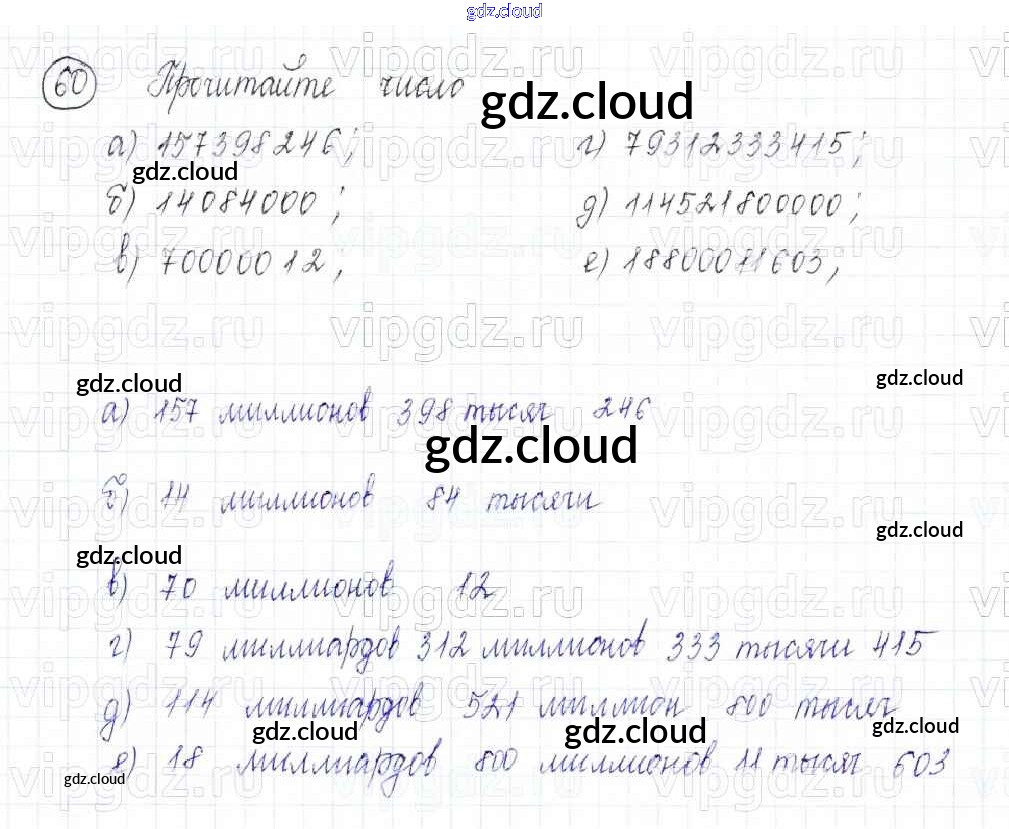 gdz.cloud
60 Прочитайте число
gdz.cloud
а) 157398246; г) 79312333415;
gdz.cloud
б) 14084000; д) 114521800000;
в) 70000012; е) 18800011603;
vipgdz.ru
gdz.cloud gdz.cloud
а) 157 миллионов 398 тысяч 246
gdz.cloud
б) 14 миллионов 84 тысячи
gdz.cloud
gdz.cloud
в) 70 миллионов 12
г) 79 миллиардов 312 миллионов 333 тысячи 415
д) 114 миллиардов 521 миллион 800 тысяч
gdz.cloud gdz.cloud gdz.cloud
е) 18 миллиардов 800 миллионов 11 тысяч 603
gdz.cloud